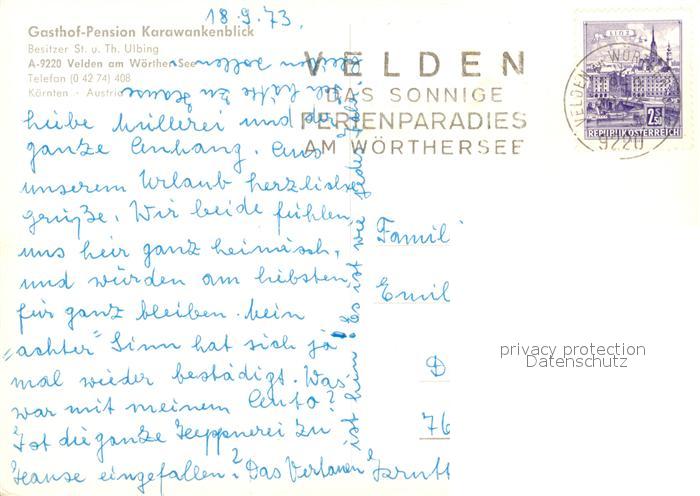 18.9.73.
Gasthof-Pension Karawankenblick
Besitzer St. u. Th. Ulbing
A-9220 Velden am Wörther-See
Telefon (0 42 74) 408
Kärnten - Austria
VELDEN
DAS SONNIGE
FERIENPARADIES
AM WÖRTHERSEE
LINZ
2.50
REPUBLIK ÖSTERREICH
VELDEN WÖR
9220
Liebe Millerei und der
ganze Anhang. Aus
unserem Urlaub herzliche
grüße. Wir beide fühlen
uns heir ganz heimisch,
und würden am liebsten
für ganz bleiben. Mein
„achter" Sinn hat sich ja
mal wieder bestädigt. Was
war mit meinem Auto?
Ist die ganze Kuppnerei zu
Hause eingefallen? Das Vertauen
ist hein Es ist wie jedes
zu Hause
Famili
Emil
D
76
privacy protection
Datenschutz